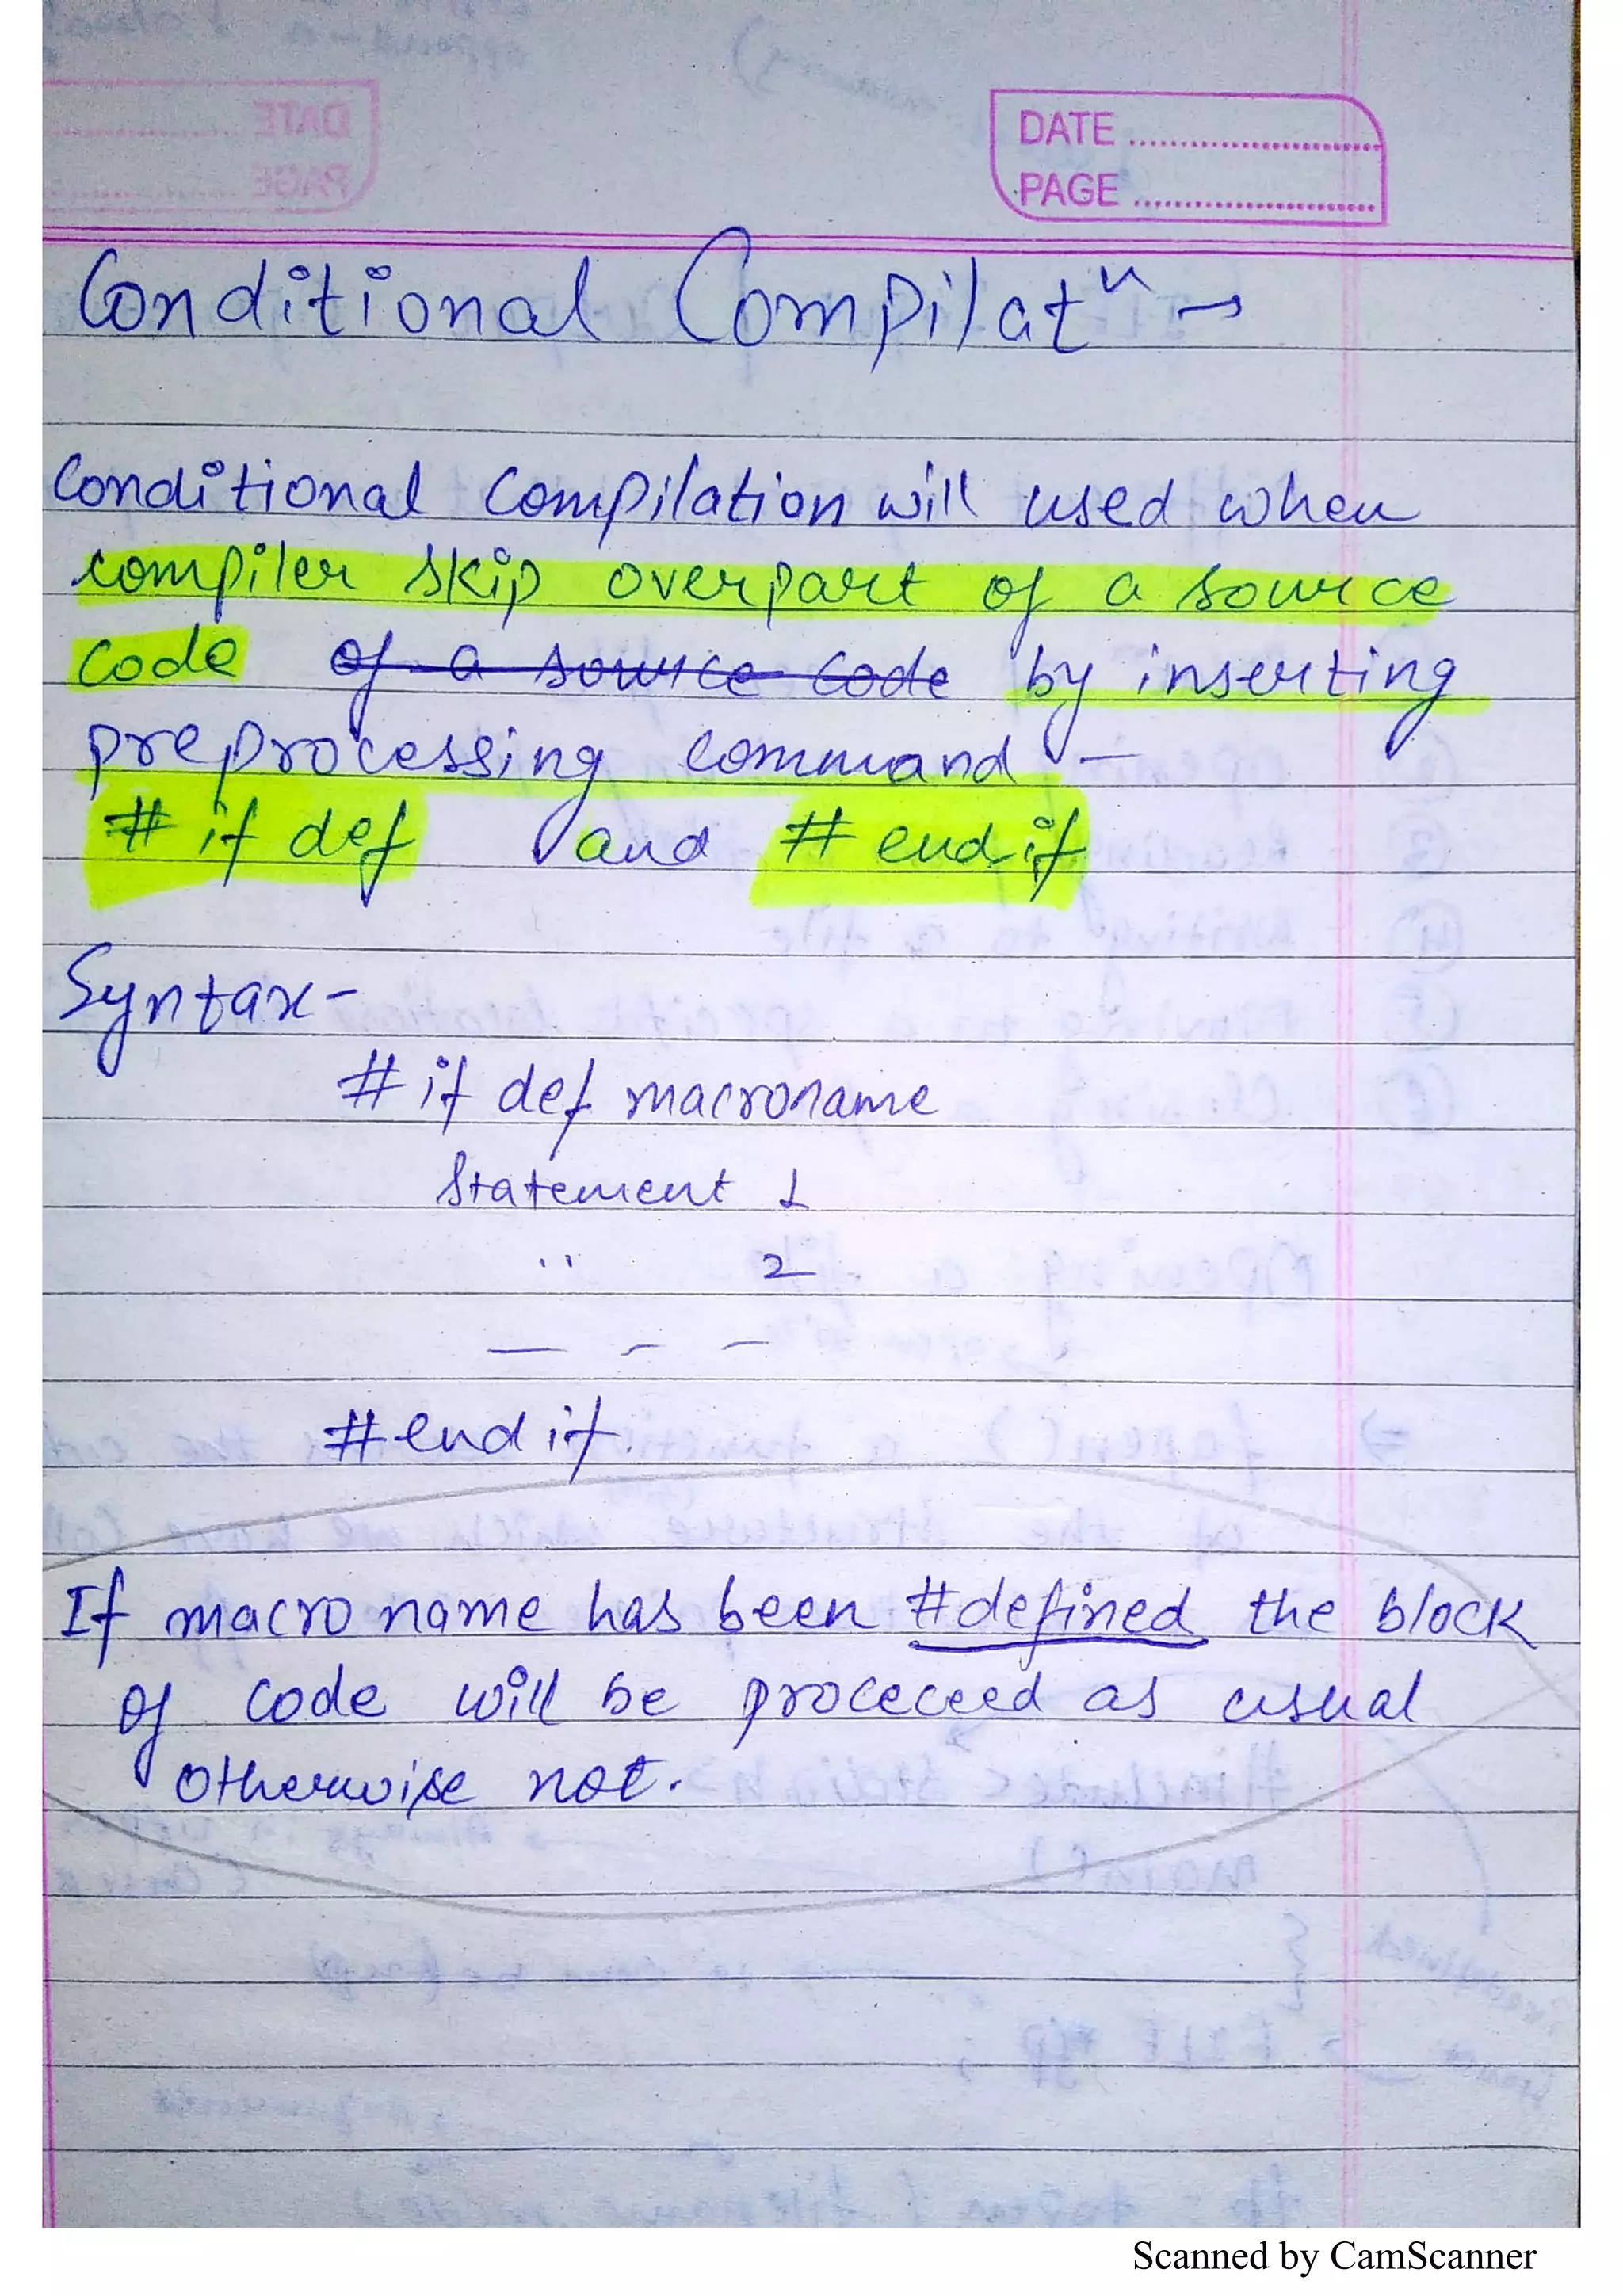 DATE
PAGE
Conditional Compilatⁿ →
Conditional Compilation will used when
compiler skip overpart of a source
code of a source code by inserting
preprocessing command -
# if def and # endif
Syntax-
# if def macroname
Statement 1
" 2
— - -
# endif.
If macro name has been #defined the block
of code will be proceceed as usual
otherwise not.
Scanned by CamScanner